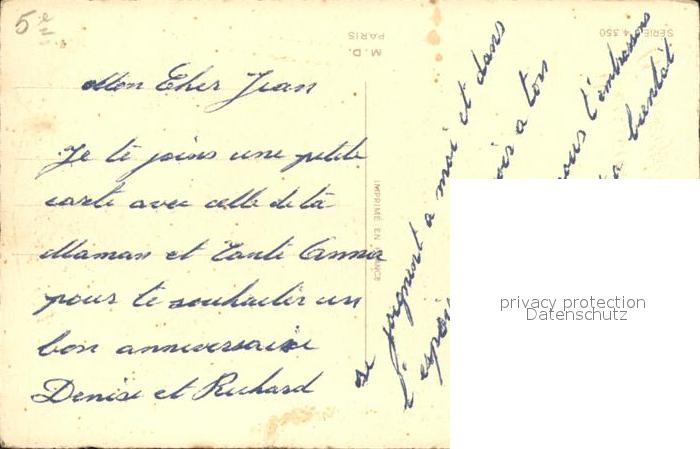 5e
M.D.
PARIS
SÉRIE 4.350
Mon Cher Jean
Je te joins une petite
carte avec celle de ta
Maman et Tante Anna
pour te souhaiter un
bon anniversaire
Denise et Richard
IMPRIMÉ EN FRANCE
se joignent a moi et dans
l'espoir a ton
nous t'embrassons
a bientôt
privacy protection
Datenschutz